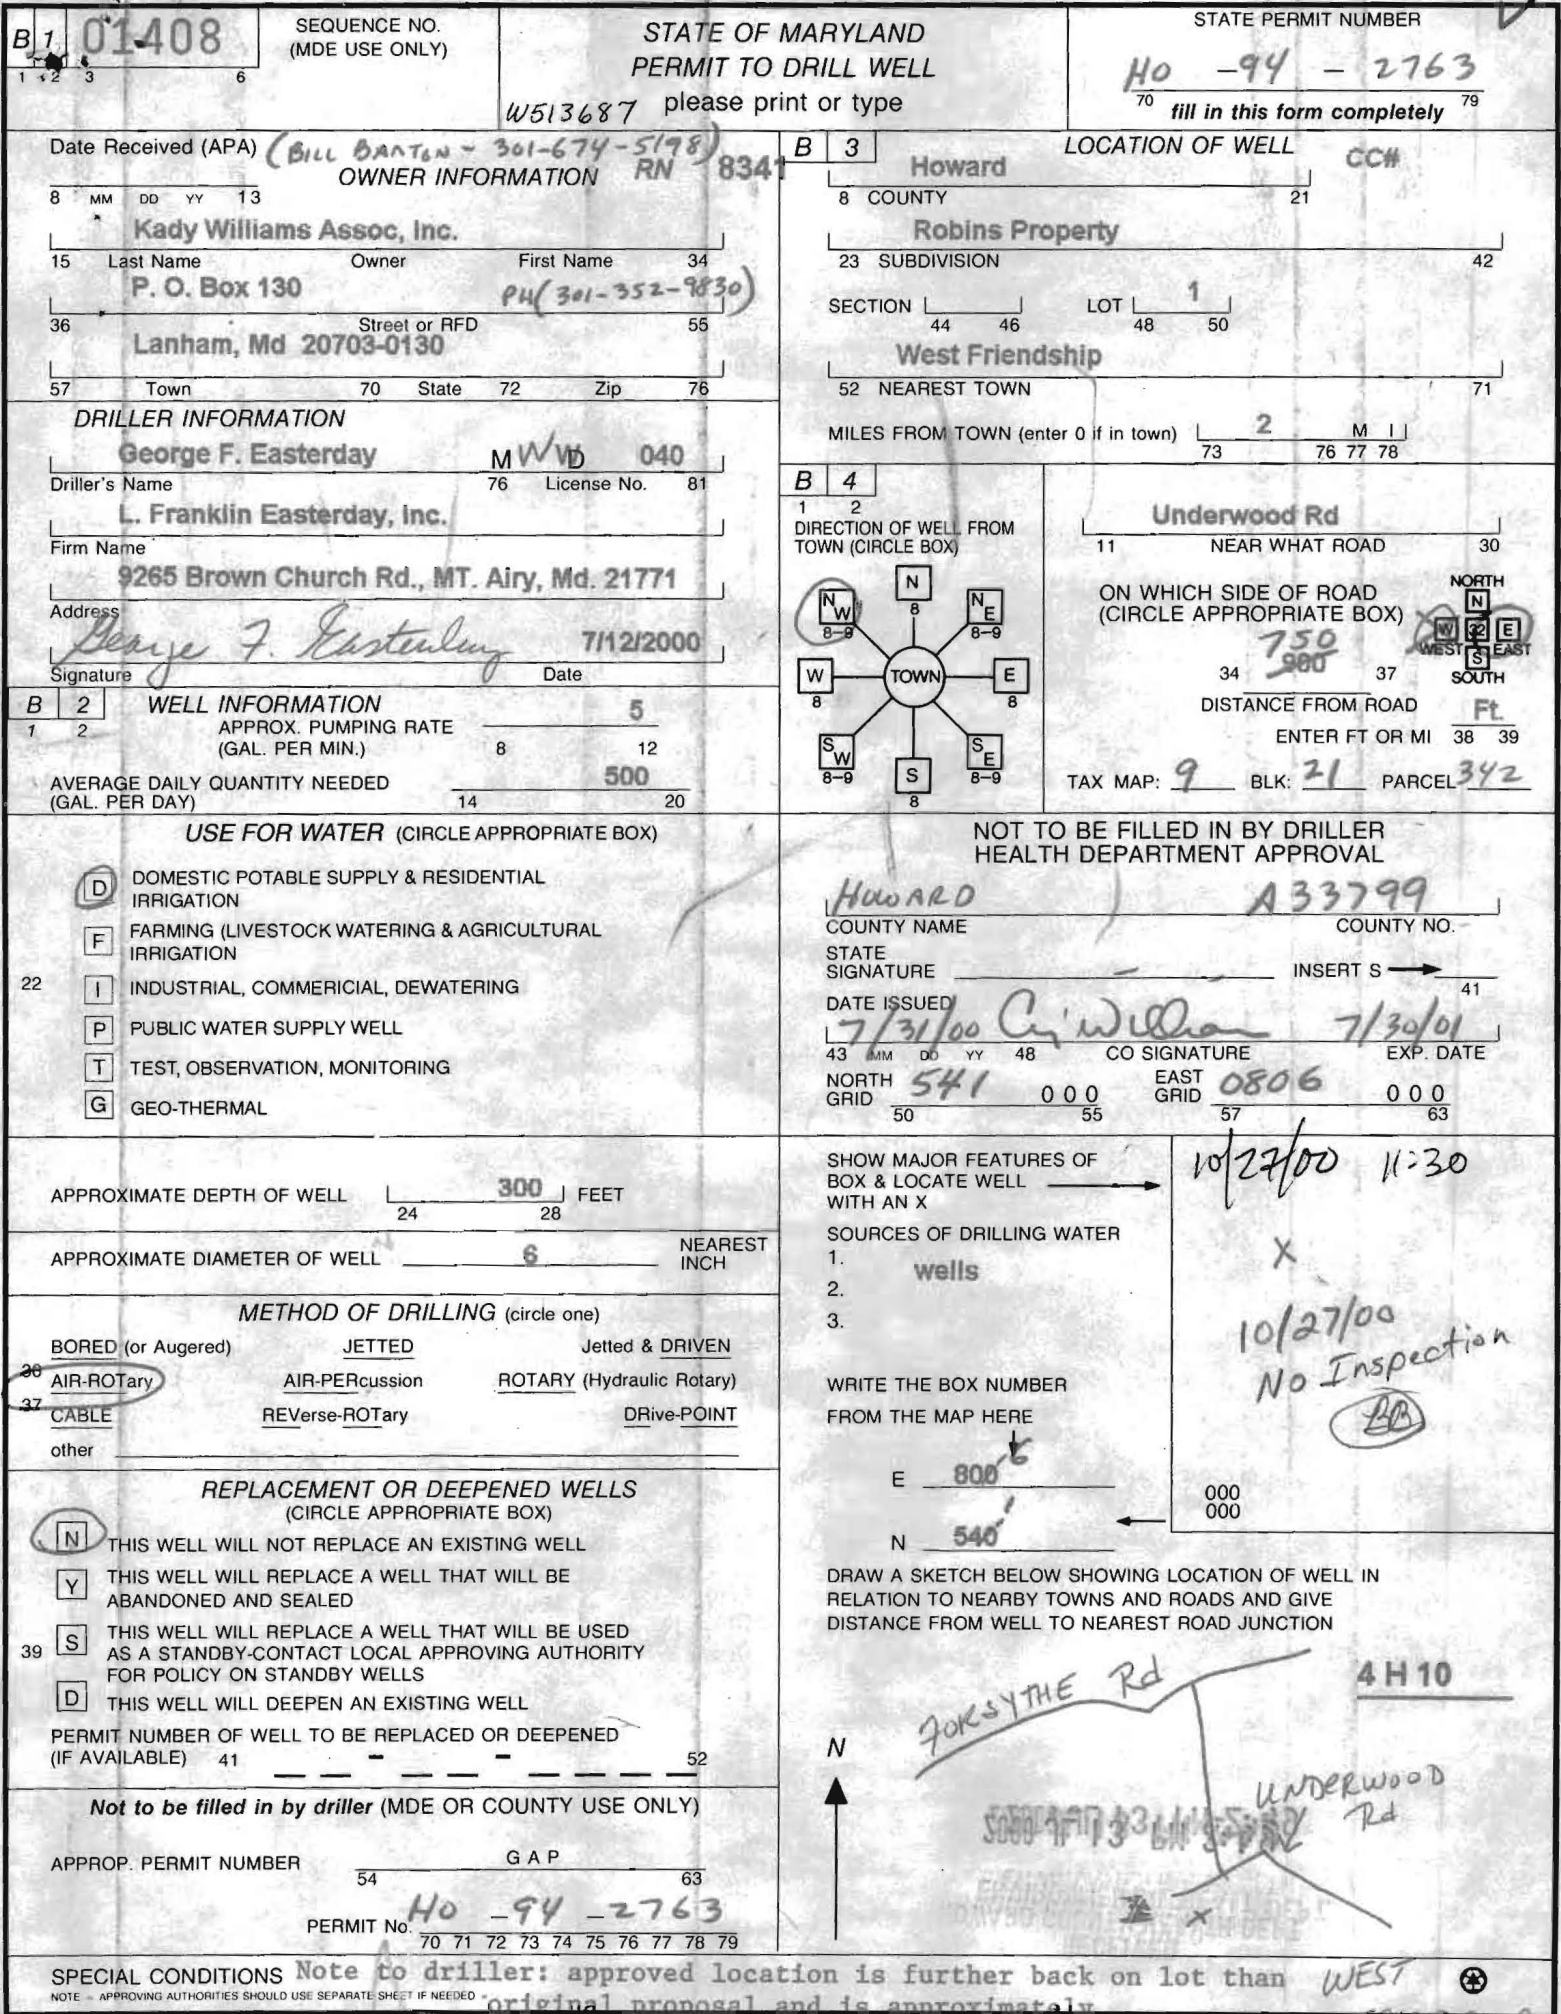 B 1 01408
1 2 3 6
SEQUENCE NO.
(MDE USE ONLY)
STATE OF MARYLAND
PERMIT TO DRILL WELL
W513687 please print or type
STATE PERMIT NUMBER
HO -94 - 2763
70 fill in this form completely 79
Date Received (APA) (BILL BARTON - 301-674-5198)
OWNER INFORMATION RN 8341
8 MM DD YY 13
Kady Williams Assoc, Inc.
15 Last Name Owner First Name 34
P. O. Box 130 PH(301-352-9830)
36 Street or RFD 55
Lanham, Md 20703-0130
57 Town 70 State 72 Zip 76
DRILLER INFORMATION
George F. Easterday M W D 040
Driller's Name 76 License No. 81
L. Franklin Easterday, Inc.
Firm Name
9265 Brown Church Rd., MT. Airy, Md. 21771
Address
George F. Easterday 7/12/2000
Signature Date
B 2 WELL INFORMATION
1 2 APPROX. PUMPING RATE 5
(GAL. PER MIN.) 8 12
AVERAGE DAILY QUANTITY NEEDED 500
(GAL. PER DAY) 14 20
USE FOR WATER (CIRCLE APPROPRIATE BOX)
D DOMESTIC POTABLE SUPPLY & RESIDENTIAL
IRRIGATION
F FARMING (LIVESTOCK WATERING & AGRICULTURAL
IRRIGATION
22 I INDUSTRIAL, COMMERICIAL, DEWATERING
P PUBLIC WATER SUPPLY WELL
T TEST, OBSERVATION, MONITORING
G GEO-THERMAL
APPROXIMATE DEPTH OF WELL 300 FEET
24 28
APPROXIMATE DIAMETER OF WELL 6 NEAREST
INCH
METHOD OF DRILLING (circle one)
BORED (or Augered) JETTED Jetted & DRIVEN
30
AIR-ROTary AIR-PERcussion ROTARY (Hydraulic Rotary)
37
CABLE REVerse-ROTary DRive-POINT
other
REPLACEMENT OR DEEPENED WELLS
(CIRCLE APPROPRIATE BOX)
N THIS WELL WILL NOT REPLACE AN EXISTING WELL
Y THIS WELL WILL REPLACE A WELL THAT WILL BE
ABANDONED AND SEALED
39 S THIS WELL WILL REPLACE A WELL THAT WILL BE USED
AS A STANDBY-CONTACT LOCAL APPROVING AUTHORITY
FOR POLICY ON STANDBY WELLS
D THIS WELL WILL DEEPEN AN EXISTING WELL
PERMIT NUMBER OF WELL TO BE REPLACED OR DEEPENED
(IF AVAILABLE) 41 - - 52
Not to be filled in by driller (MDE OR COUNTY USE ONLY)
APPROP. PERMIT NUMBER G A P
54 63
PERMIT No. HO -94 -2763
70 71 72 73 74 75 76 77 78 79
B 3 LOCATION OF WELL CC#
Howard
8 COUNTY 21
Robins Property
23 SUBDIVISION 42
SECTION LOT 1
44 46 48 50
West Friendship
52 NEAREST TOWN 71
MILES FROM TOWN (enter 0 if in town) 2 M I
73 76 77 78
B 4
1 2
DIRECTION OF WELL FROM
TOWN (CIRCLE BOX)
N 8
NW 8-9
NE 8-9
W 8
TOWN
E 8
SW 8-9
S 8
SE 8-9
Underwood Rd
11 NEAR WHAT ROAD 30
ON WHICH SIDE OF ROAD
(CIRCLE APPROPRIATE BOX)
NORTH
N
W 32 E
WEST EAST
S
SOUTH
750
34 900 37
DISTANCE FROM ROAD Ft.
ENTER FT OR MI 38 39
TAX MAP: 9 BLK: 21 PARCEL 342
NOT TO BE FILLED IN BY DRILLER
HEALTH DEPARTMENT APPROVAL
HOWARD A33799
COUNTY NAME COUNTY NO.
STATE
SIGNATURE INSERT S
41
DATE ISSUED
7/31/00 7/30/01
43 MM DD YY 48 CO SIGNATURE EXP. DATE
NORTH GRID 541 000 EAST GRID 0806 000
50 55 57 63
SHOW MAJOR FEATURES OF
BOX & LOCATE WELL
WITH AN X
10/27/00 11:30
X
10/27/00
No Inspection
BB
SOURCES OF DRILLING WATER
1.
wells
2.
3.
WRITE THE BOX NUMBER
FROM THE MAP HERE
E 800 6
N 540 1
000
000
DRAW A SKETCH BELOW SHOWING LOCATION OF WELL IN
RELATION TO NEARBY TOWNS AND ROADS AND GIVE
DISTANCE FROM WELL TO NEAREST ROAD JUNCTION
4 H 10
FORSYTHE Rd
N
UNDERWOOD
Rd
X
SPECIAL CONDITIONS Note to driller: approved location is further back on lot than WEST
NOTE - APPROVING AUTHORITIES SHOULD USE SEPARATE SHEET IF NEEDED - original proposal and is approximately